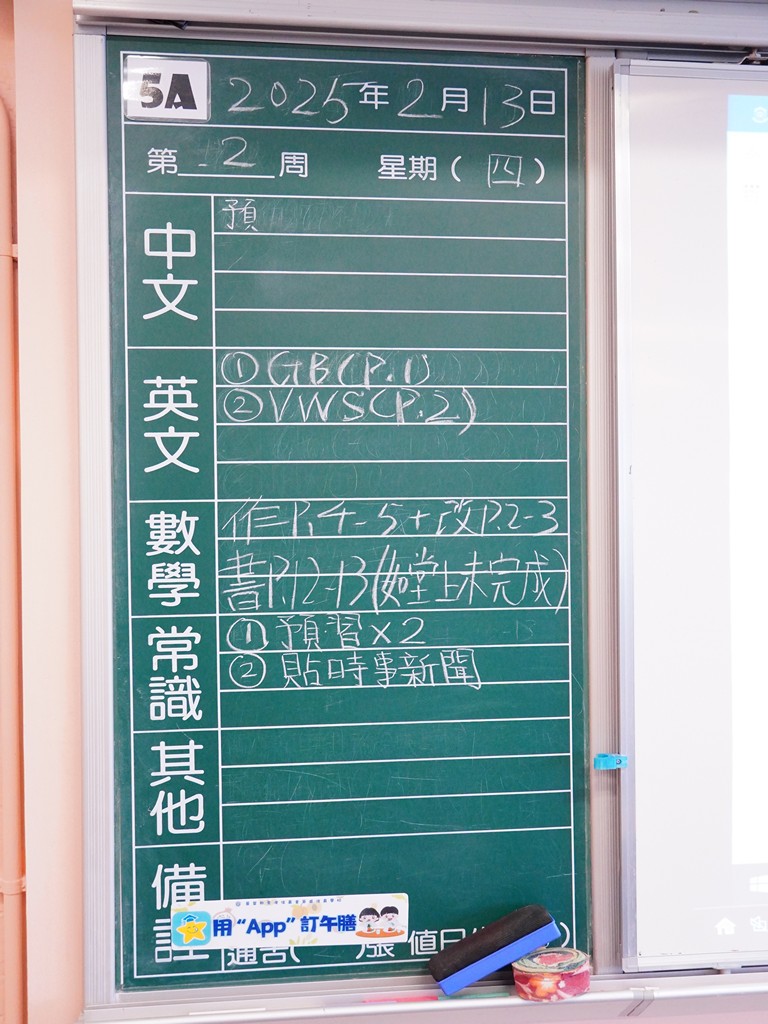 5A 2025年2月13日
第2周 星期(四)
中文
預
英文
①GB(P.1)
②VWS(P.2)
數學
作三P.4-5+改P.2-3
書P.12-13(如堂上未完成)
常識
①預習×2
②貼時事新聞
其他
備註
用“App”訂午膳
通告( )張 值日( )